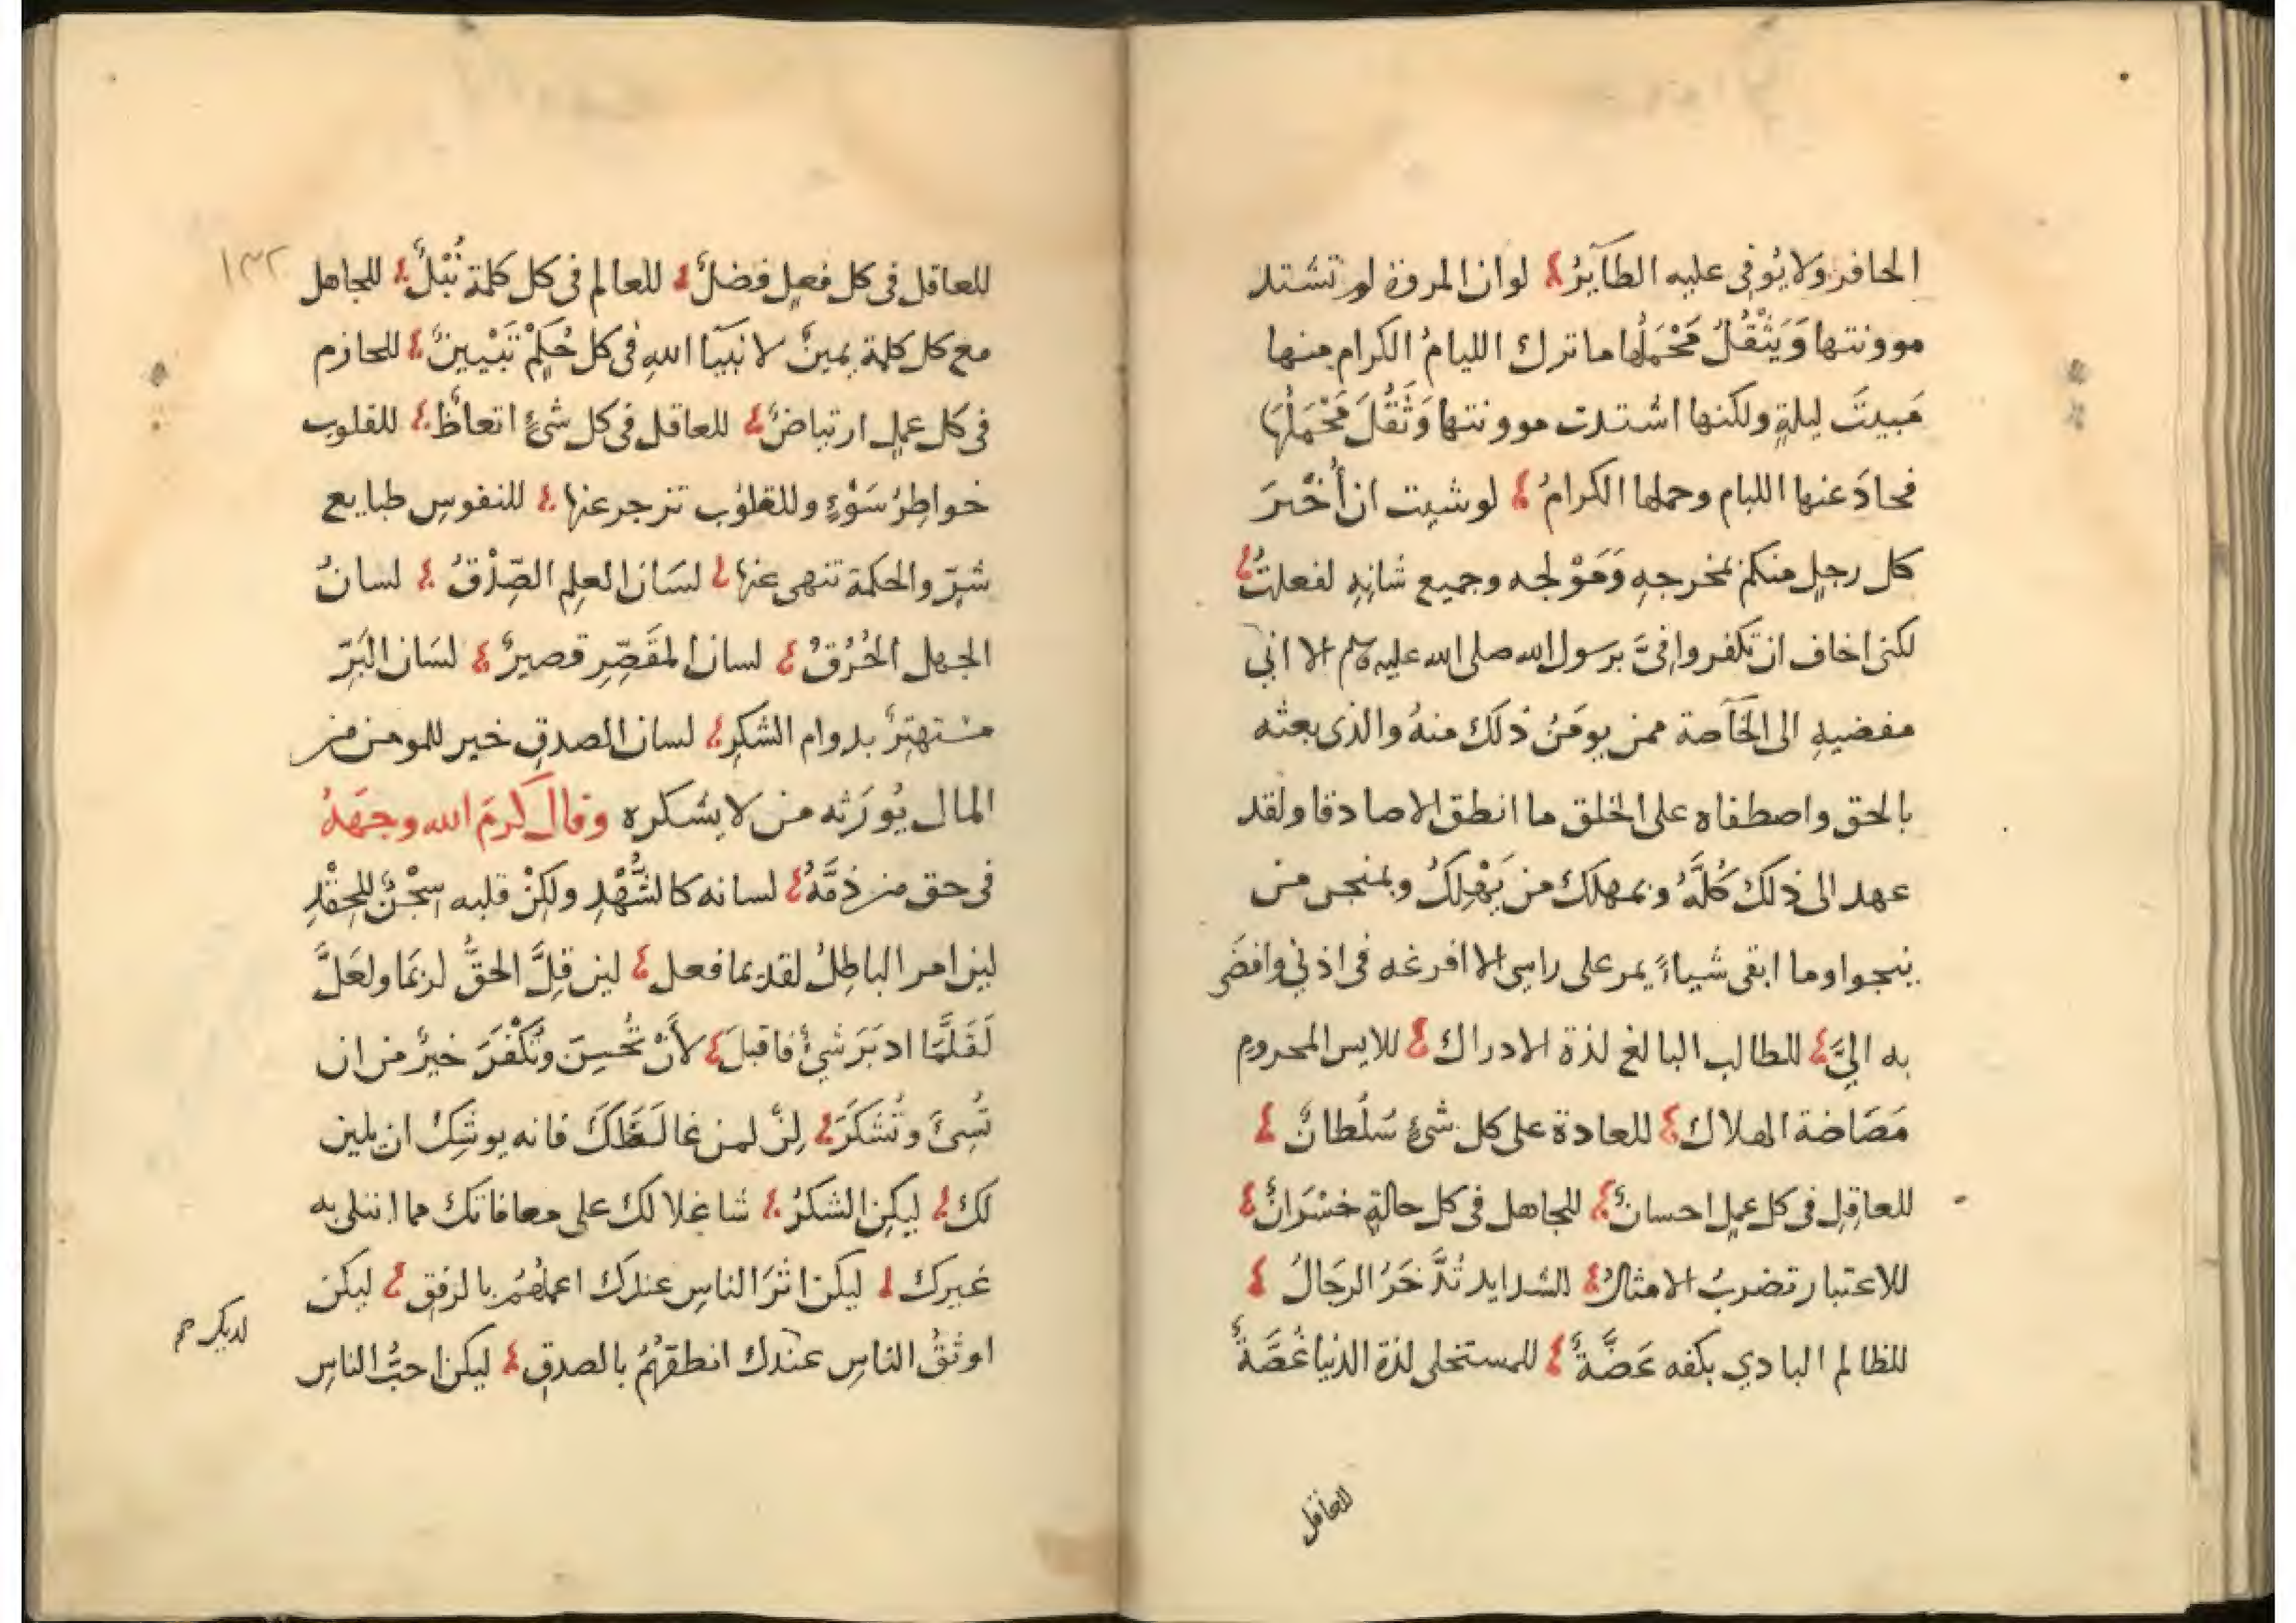 الحافر ولا يُوفِي عليه الطآيرُ لو ان المروة لم تشتد
موونتها وَيَثْقُلُ مَحْمَلُها ما ترك الليامُ الكرام منها
مَبيتَ ليلةٍ ولكنها اشتدت موونتها وَثَقُلَ مَحْمَلُهَا
فحادَ عنها الليام وحملها الكرامُ لو شيت ان أُخْبرَ
كل رجلٍ منكم بمخرجهِ وَمَوْلجه وجميع شانِهِ لفعلتُ
لكنى اخاف ان تكفروا فىَّ برسول الله صلى الله عليه وسلم الا انى
مفضيهِ الى الخآصة ممن يومَنُ ذلكَ منهُ والذى بعثه
بالحق واصطفاه على الخلق ما انطق الا صادقا ولقد
عهد الى ذلكَ كُلَّهُ وبمهلك من يَهْلِكُ وبمنجى من
ينجوا وما ابقى شياءً يمر على راسى الا افرغه فى اذنِي وافضَى
به اليَّ للطالب البالغ لذة الادراك للايس المحروم
مَضَاضة الهلاك للعادة على كل شئٍ سُلْطانٌ
للعاقِلِ فى كل عملٍ احسانٌ للجاهل فى كل حالةٍ خسْرَانٌ
للاعتبار تضربُ الامثالُ للشدايد تُدَّخَرُ الرجَالُ
للظالم البادي بكفه عَضَّةٌ للمستحلى لذة الدنيا غُصَّةٌ
للعاقل
١٣٢
للعاقل فى كل فعلٍ فضلٌ للعالم فى كل كلمة نُبْلٌ للجاهل
مع كل كلمة يمينٌ لانبيآ اللهِ فى كل حُكمٍ تَبْيينٌ للحازم
فى كل عملٍ ارتياضٌ للعاقل فى كل شئٍ اتعاظٌ للقلوب
خواطِرُ سَوْءٍ وللقلوب تزجر عنها للنفوسِ طبايع
شرّ والحكمة تنهى عنها لسَان العلِم الصِّدْقُ لسانُ
الجهل الخُرْقُ لسان المقَصِّرِ قصيرٌ لسَان البَرّ
مستهتِرٌ بدوام الشكرِ لسان الصدقِ خير للمومن من
المال يُورَثه من لا يشكره وقال كرمَ الله وجهَهُ
فى حق من ذمَّهُ لسانه كالشُّهْدِ ولكِنْ قلبه سِجْنٌ للحِقْدِ
لين امر الباطِلُ لقديما فعل لين قِلَّ الحقُّ لربمَا ولعَلَّ
لَقَلَّمَا ادبَرَ شيٌ فاقبلَ لأَنْ تُحْسِنَ وتُكْفَرَ خيرٌ من ان
تُسِئَ وتُشكَرَ لِنْ لمن غالَظَكَ فانه يوشِكُ ان يلين
لك ليكن الشكرُ شاغلا لك على معافاتك مما ابتلى به
غيرك ليكن اثرَ الناسِ عندك اعملهُمُ بالرفقِ ليكن
اوثقُ الناسِ عندك انطقهُمُ بالصدقِ ليكن احبُّ الناسِ